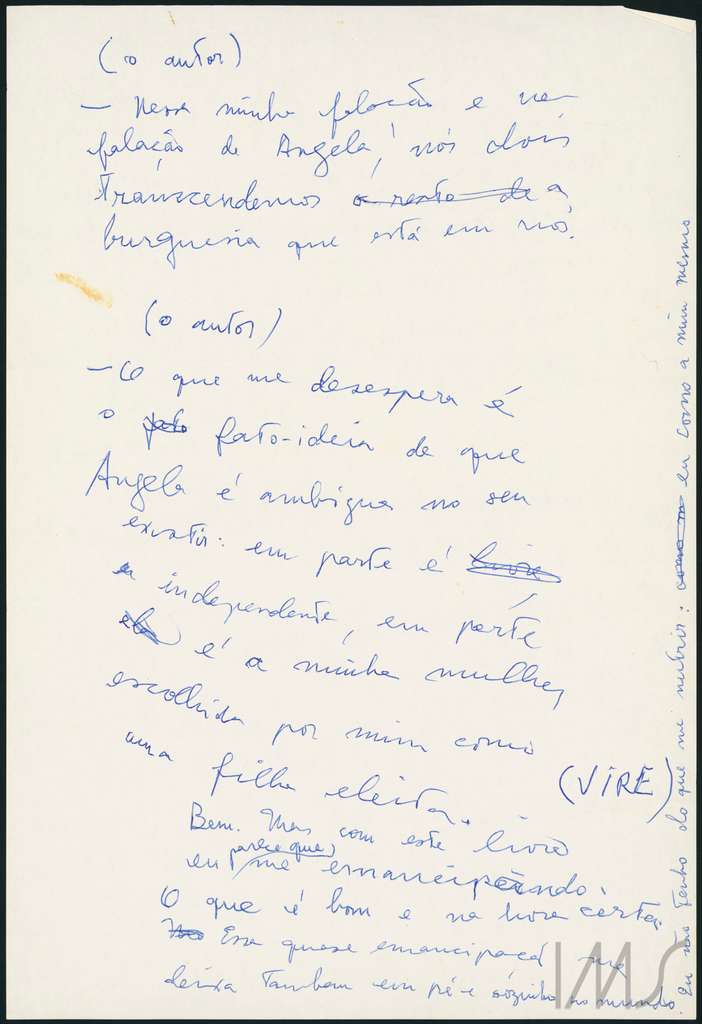 (o autor)
— Nessa minha falação e na
falação de Angela, nós dois
transcendemos o resto de a
burguesia que está em nós.
(o autor)
— O que me desespera é
o fato fato-ideia de que
Angela é ambigua no seu
existir: em parte é livre
independente, em parte
ela é a minha mulher
escolhida por mim como
uma filha eleita.
(VIRE)
Bem. Mas com este livro
parece que
eu me emancipando
O que é bom e na hora certa.
Essa quase emancipação me
deixa tambem em pé e sózinho no mundo.
Eu não tenho do que me nutrir: como eu como a mim mesmo
IMS